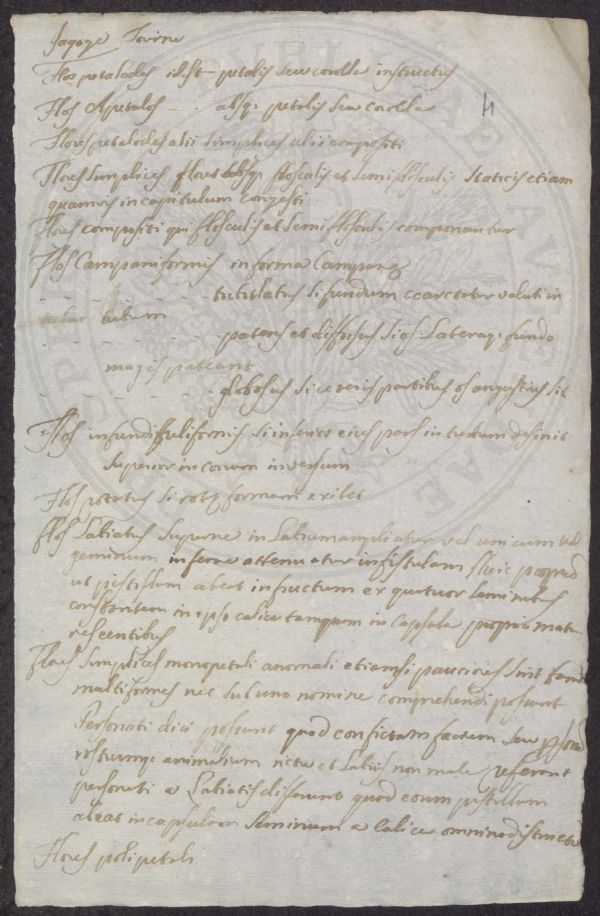 Isagoge Tourne
Flos petalodes idest petalis seu corolla instructus
Flos Apetalos - . absq; petalis seu corolla
4
Flores petalodes alii simplices alii compositi
Flores simplices flores absq; flosculis et semiflosculis staticis etiam
quamvis in capitulum congesti
Flores compositi qui flosculis et semiflosculis componantur
Flos Campaniformis in forma Campanę
- - - - tubulatus si fundum coarctetur veluti in
tubum
- - - - patens et diffusus si os Lateraq; fundo
magis pateant
- - - - globosus si ceteris partibus os angustius sit
Flos infundibuliformis si inferior eius pars in tubum desinit
superior in conum inversum
Flos rotatus si rotę formam exibet
Flos Labiatus superne in Labium ampliatur vel unicum vel
geminum inferne attenuatur in fistulam sheic
ut pistillum abeat in fructum ex quatuor seminibus
constantem in ipso calice tamquam in capsula propria matu
rescentibus
Flores simplices monopetali anomali etiamsi pauciores sint tamen
multiformes nec sub uno nomine comprehendi possunt
Personati dici possunt quod confictam faciem seu
rostrumq; animalium rictu et Labiis non male referunt
personati a Labiatis differunt quod eorum pistillum
abeat in capsulam seminum a Calice omnino distinctam
Flores polipetali